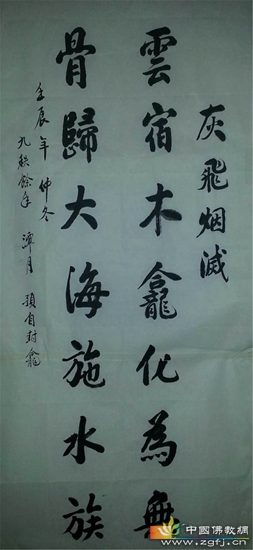 灰飛烟滅
雲宿木龕化為無
骨歸大海施水族
壬辰年仲冬
九秩餘年 潭月 預自封龕
中國佛教網
www.zgfj.cn